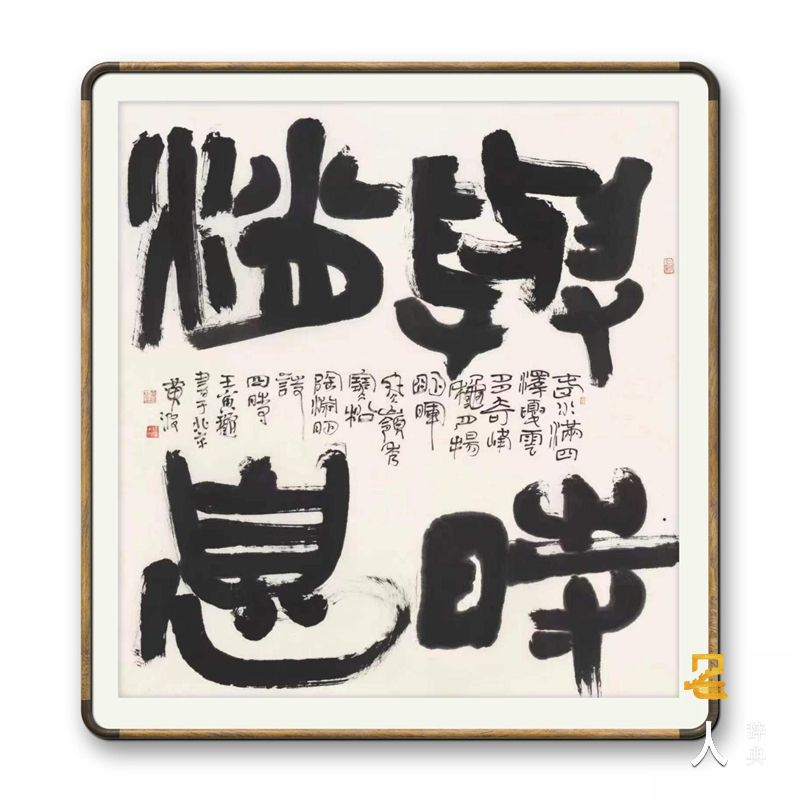 與時
消息
春水滿四
澤夏雲
多奇峰
秋月揚
明暉
冬嶺秀
寒松
陶淵明
詩
四時
壬寅秋
書于北京
名人
辞典